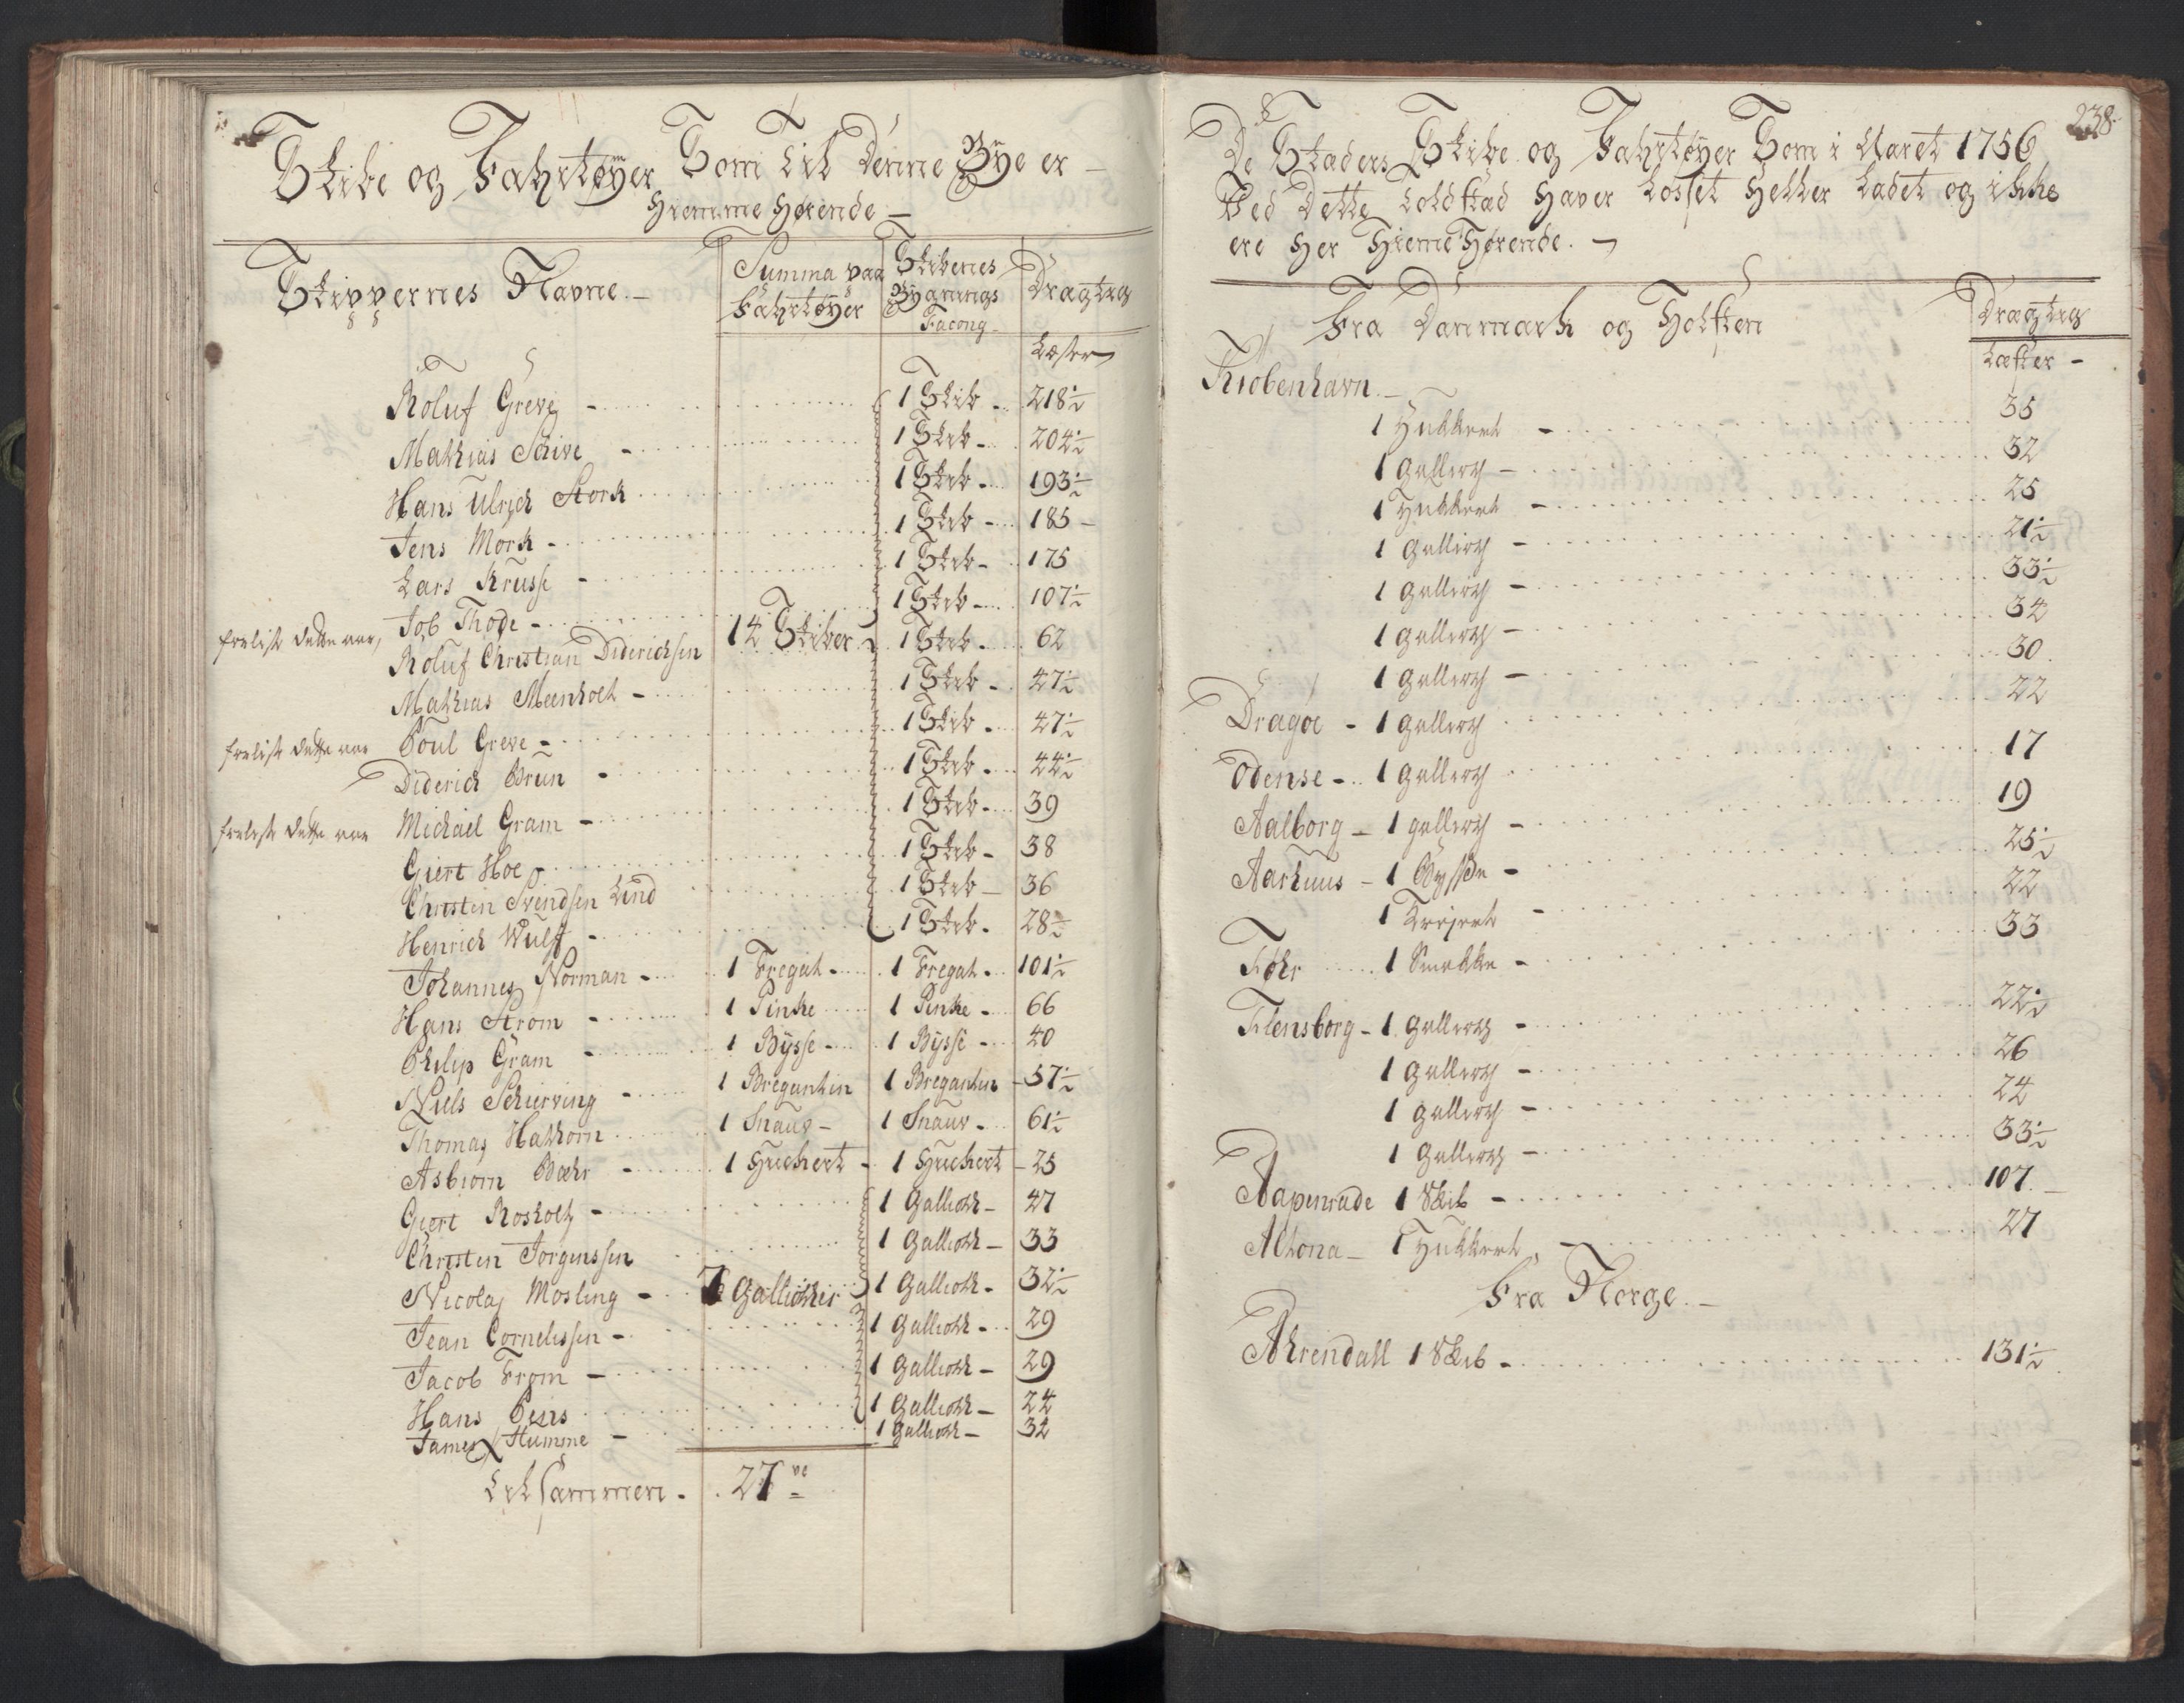 Skibe og Fahrtøyer Som til denne Bye er
Hiemme Hørende
Skippernes Navne
Summa paa Fahrtøyer
Skibenes Bygnings Facong
Dragtig
Læster
Roluf Greve - 1 Skib - 218½
Mathias Schive - 1 Skib - 204½
Hans Ulrich Stork 1 Skib - 193½
Jens Mork - 1 Skib - 185 -
Lars Krusse - 1 Skib - 175
Job Thode - 1 Skib - 107½
forlist dette aar, Roluf Christian Diderichsen 14 Skiber 1 Skib - 62
Mathias Meenholt - 1 Skib - 47½
Poul Greve - 1 Skib - 47½
forlist dette aar Diderich Brun - 1 Skib - 44½
Michael Gram - 1 Skib - 39
forliste dette aar Giert Hoe 1 Skib - 38
Christen Svendsen Lind 1 Skib - 36
Henrich Wulff - 1 Skib - 28½
Johannes Norman - 1 Fregat - 1 Fregat - 101½
Hans Strøm - 1 Pinke 1 Pinke - 66
Philip Gram - 1 Bysse - 1 Bysse - 40
Niels Schierving - 1 Bregantin 1 Bregantin - 57½
Thomas Hathorn 1 Snauv - 1 Snauv - 61½
Asbiørn Bæhr - 1 Huckert - 1 Huckert - 25
Giert Rosholt - 1 Gallioth - 47
Christen Jørgenssen 1 Gallioth - 33
Nicolaj Mosling - 7 Galliother 1 Gallioth - 32½
Jean Cornelissen - 1 Gallioth - 29
Jacob From - 1 Gallioth - 29
Hans Peirs 1 Gallioth - 24
James Humme - 1 Gallioth - 34
Til Sammen - 27 ve
238
De Stæders Skibe og Fahrtøyer Som i Aaret 1756
Ved Dette Toldsted Haver Losset Heller Ladet og ikke
ere Her Hieme Hørende.
Fra Danmark og Holsten
Dragtig
Læster -
Kiøbenhavn
1 Hukkert - 35
1 Galleoth - 32
1 Hukkert - 25
1 Galleoth - 21½
1 Galleoth - 33½
1 Galleoth - 34
1 Galleoth - 30
Dragøe - 1 Galleoth 22
Odense - 1 Galleoth 17
Aalborg - 1 galleoth - 19
Aarhuus - 1 Bysse - 25½
1 Krejert - 22
Føhr 1 Smakke - 33
Flensborg - 1 Galleoth - 22½
1 Galleoth - 26
1 Galleoth - 24
1 Galleoth - 33½
Aapenrade 1 Skib - 107
Altona - 1 Hukkert - 27
Fra Norge
Ahrendall 1 Skib - 131½